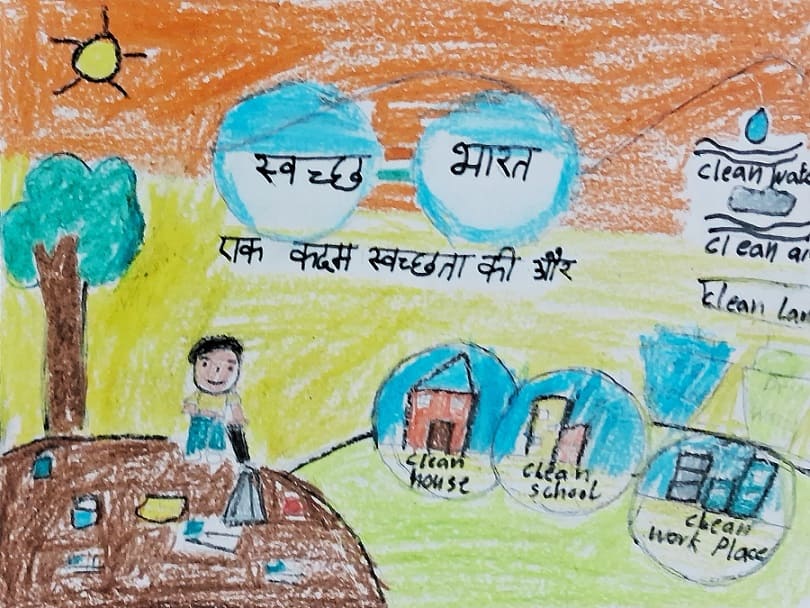 स्वच्छ भारत
एक कदम स्वच्छता की और
clean wate
clean ai
clean lan
clean
house
clean
school
clean
work place